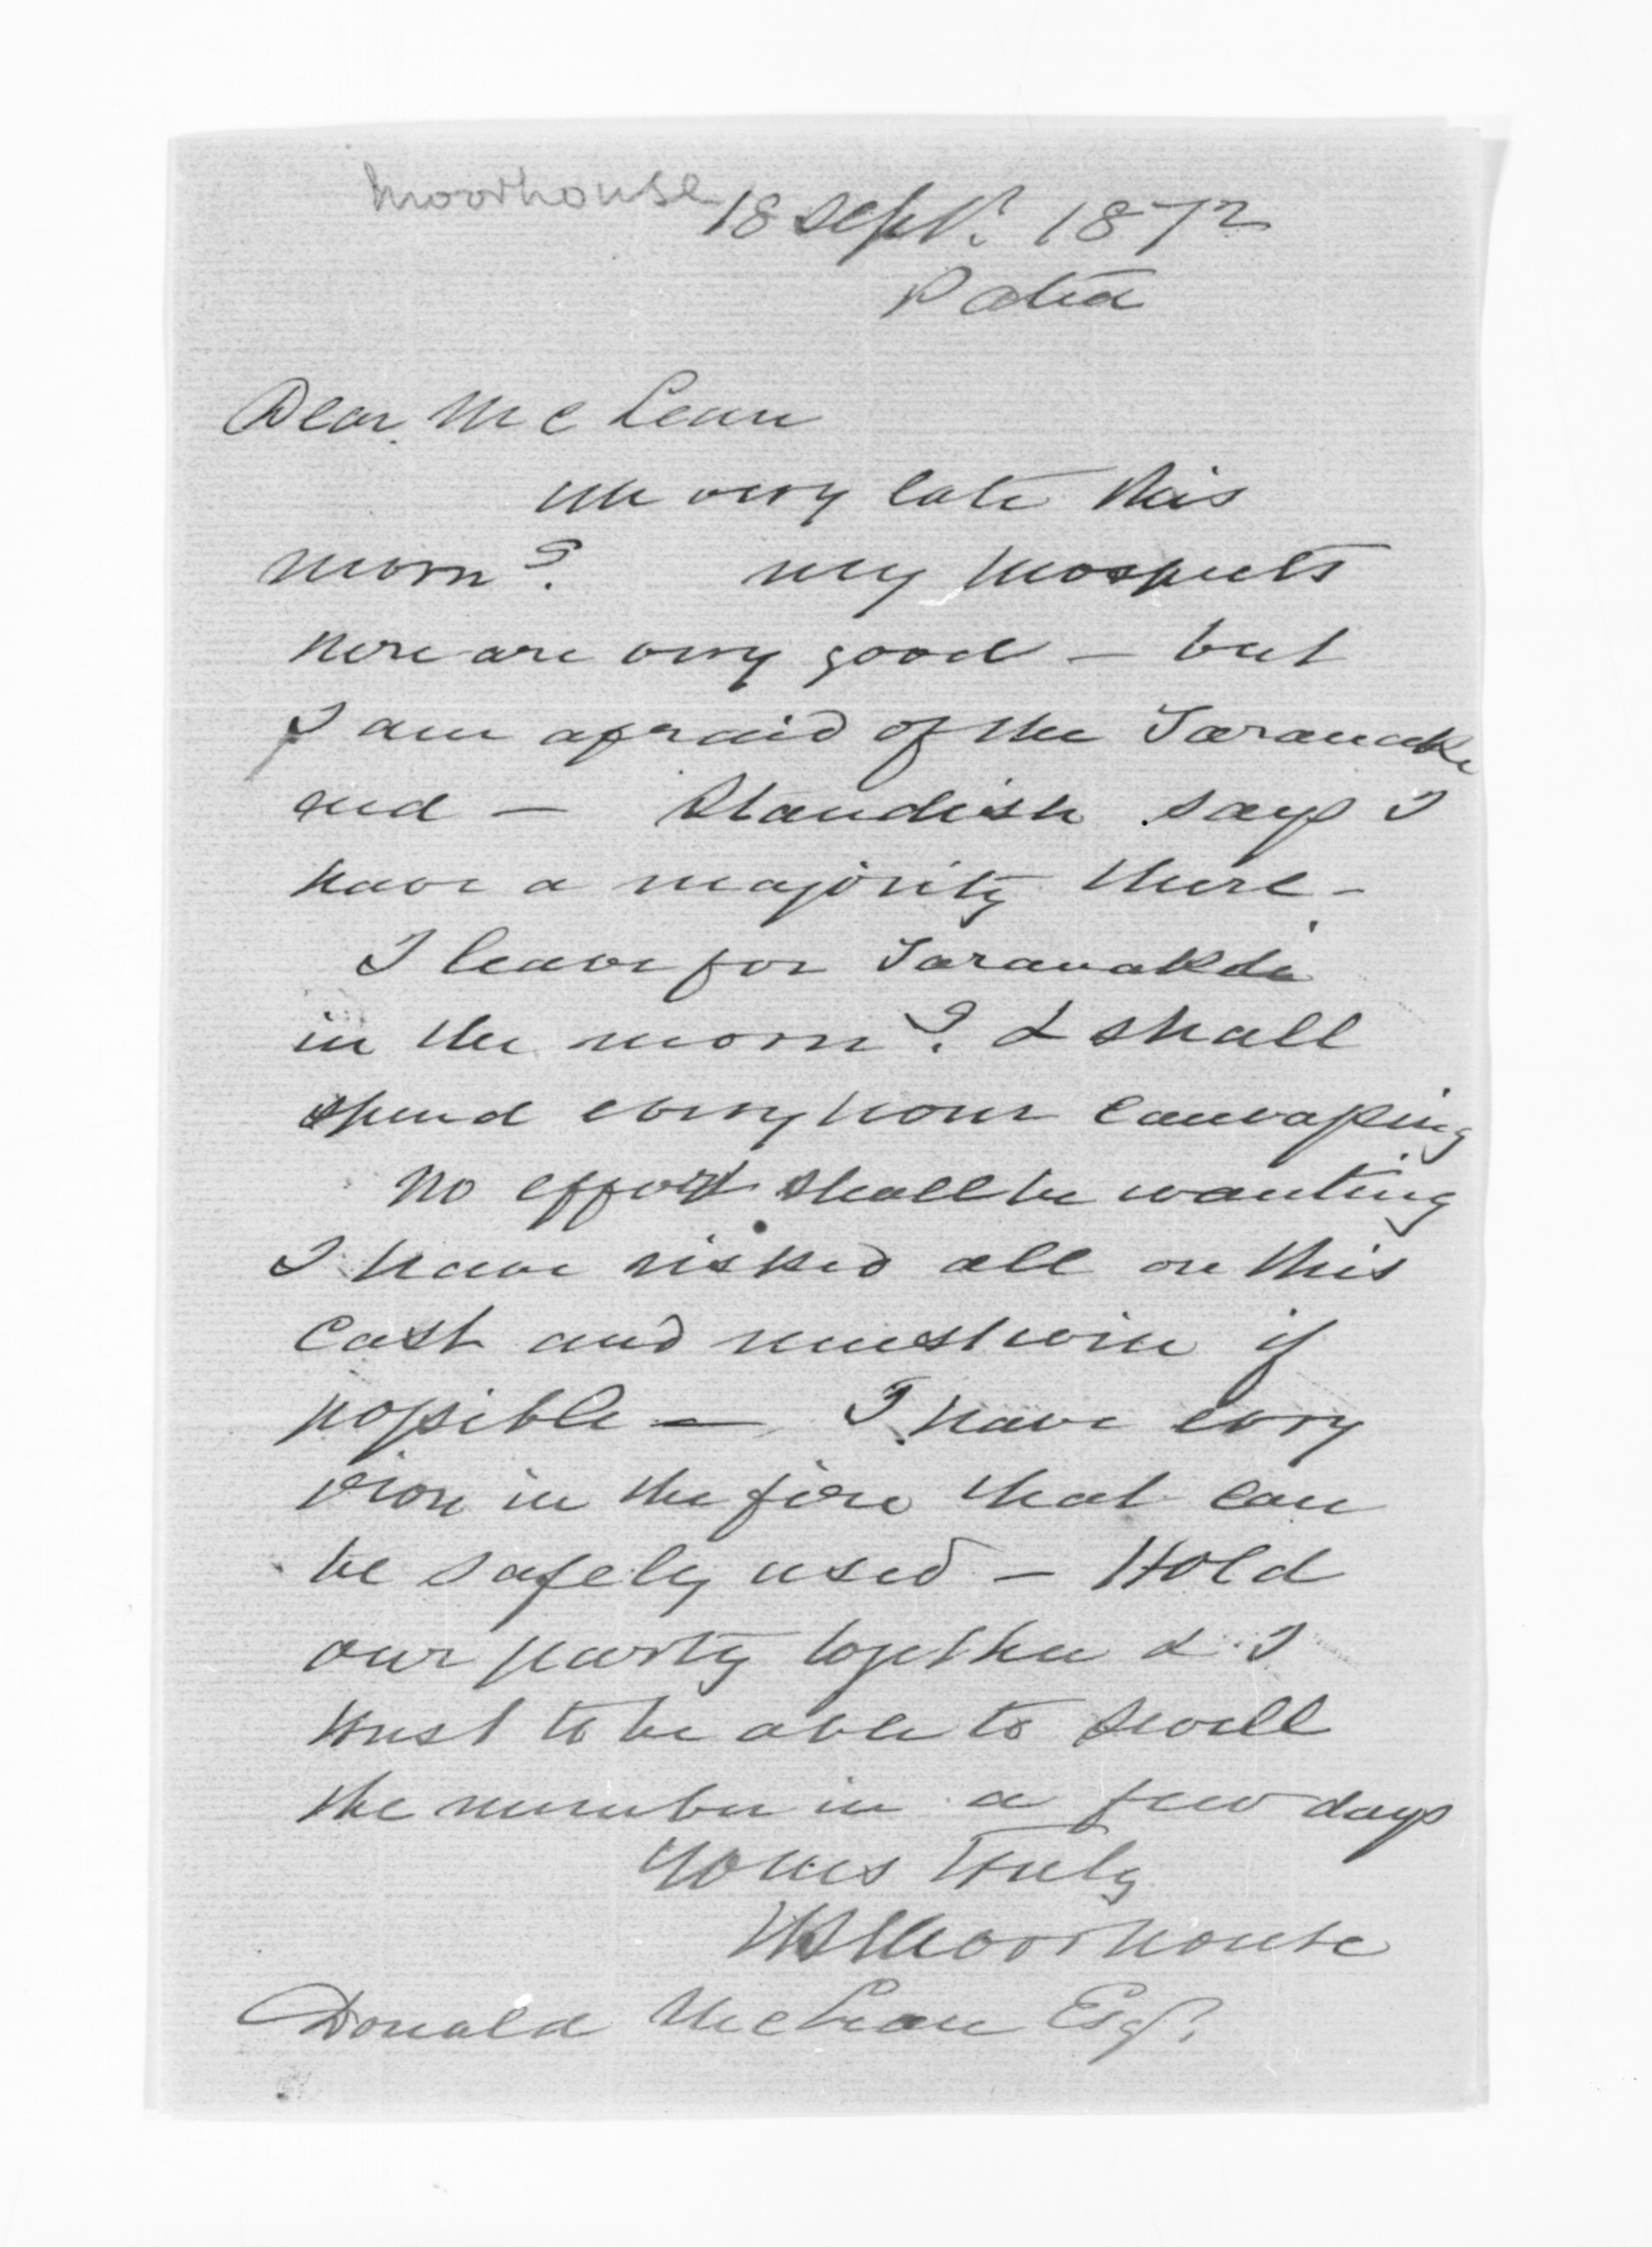 Moorhouse
18 Sept. 1872
Patea
Dear McLean
very late this
morng. my prospects
here are very good — but
I am afraid of the Taranaki
end — Standish says I
have a majority there —
I leave for Taranaki
in the morng. & shall
spend every hour canvassing
No effort shall be wanting
I have risked all on this
Cast and must win if
possible — I have every
iron in the fire that can
be safely used — Hold
our party together & I
trust to be able to swell
the number in a few days
Yours truly
WS Moorhouse
Donald McLean Esqr.